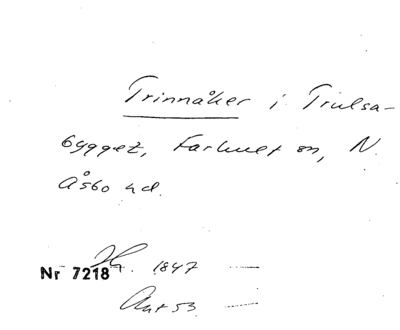 Trinnåker i Trulsa-
bygget, Farhult sn, N.
Åsbo hd.
Nr 7218 1847
Akt 53